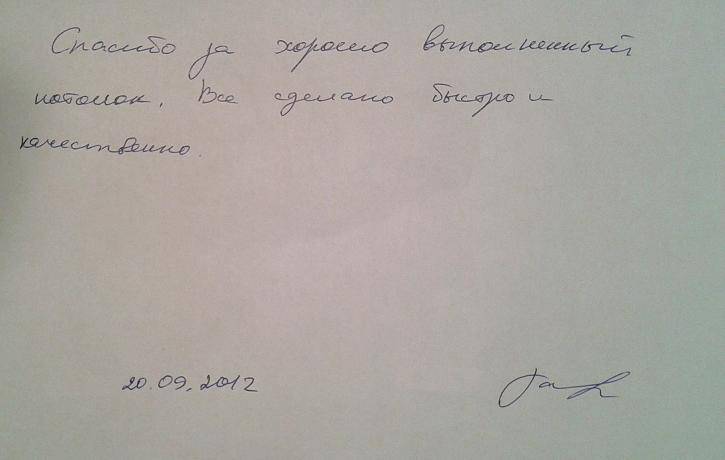 Спасибо за хорошо выполненный
потолок. Все сделано быстро и
качественно.
20.09.2012